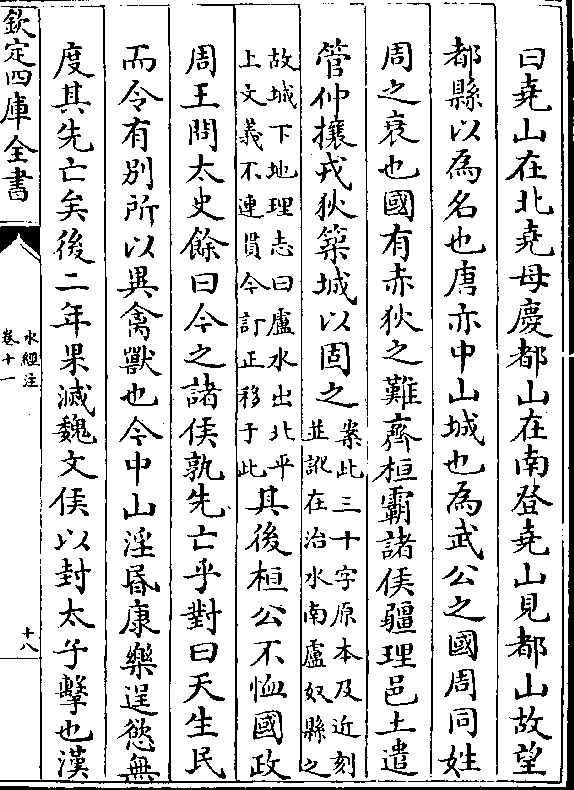 曰堯山在北堯母慶都山在南登堯山見都山故望
都縣以為名也唐亦中山城也為武公之國周同姓
周之衰也國有赤狄之難齊桓霸諸侯疆理邑土遣
管仲攘戎狄築城以固之案此三十字原本及近刻
並訛在治水南盧奴縣之
故城下地理志曰盧水出北平
上文義不連貫今訂正移于此其後桓公不恤國政
周王問太史餘曰今之諸侯孰先亡乎對曰天生民
而令有別所以異禽獸也今中山淫昬康樂逞慾無
度其先亡矣後二年果滅魏文侯以封太子擊也漢
欽定四庫全書
水經注
卷十一
十八